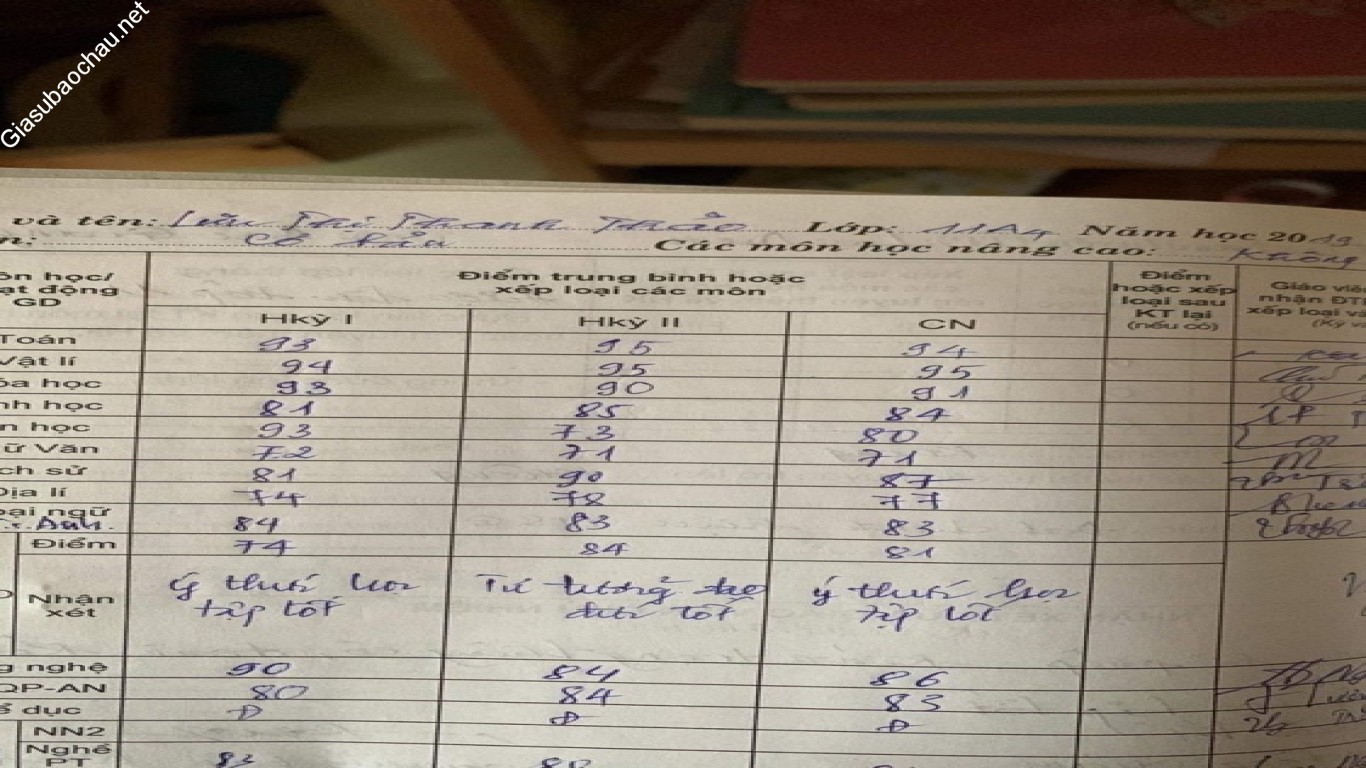 Giasubaochau.net
và tên: Lưu Thị Thanh Thảo Lớp: 11A4 Năm học 2019
n: Cơ bản Các môn học nâng cao: Không
ôn học/ ạt động GD Điểm trung bình hoặc xếp loại các môn Điểm hoặc xếp loại sau KT lại (nếu có) Giáo viên
nhận ĐT
xếp loại và
(Ký và
Hkỳ I Hkỳ II CN
Toán 93 95 94
Vật lí 94 95 95
óa học 93 90 91
nh học 81 85 84
n học 93 73 80
ữ Văn 72 71 71
ch sử 81 90 87
Địa lí 74 78 77
oại ngữ
T. Anh 84 83 83
Điểm 74 84 81
Nhận xét Ý thức học tập tốt Tư tưởng đạo đức tốt ý thức học tập tốt
g nghệ 90 84 86
QP-AN 80 84 83
ể dục Đ Đ Đ
NN2
Nghề PT 83 80